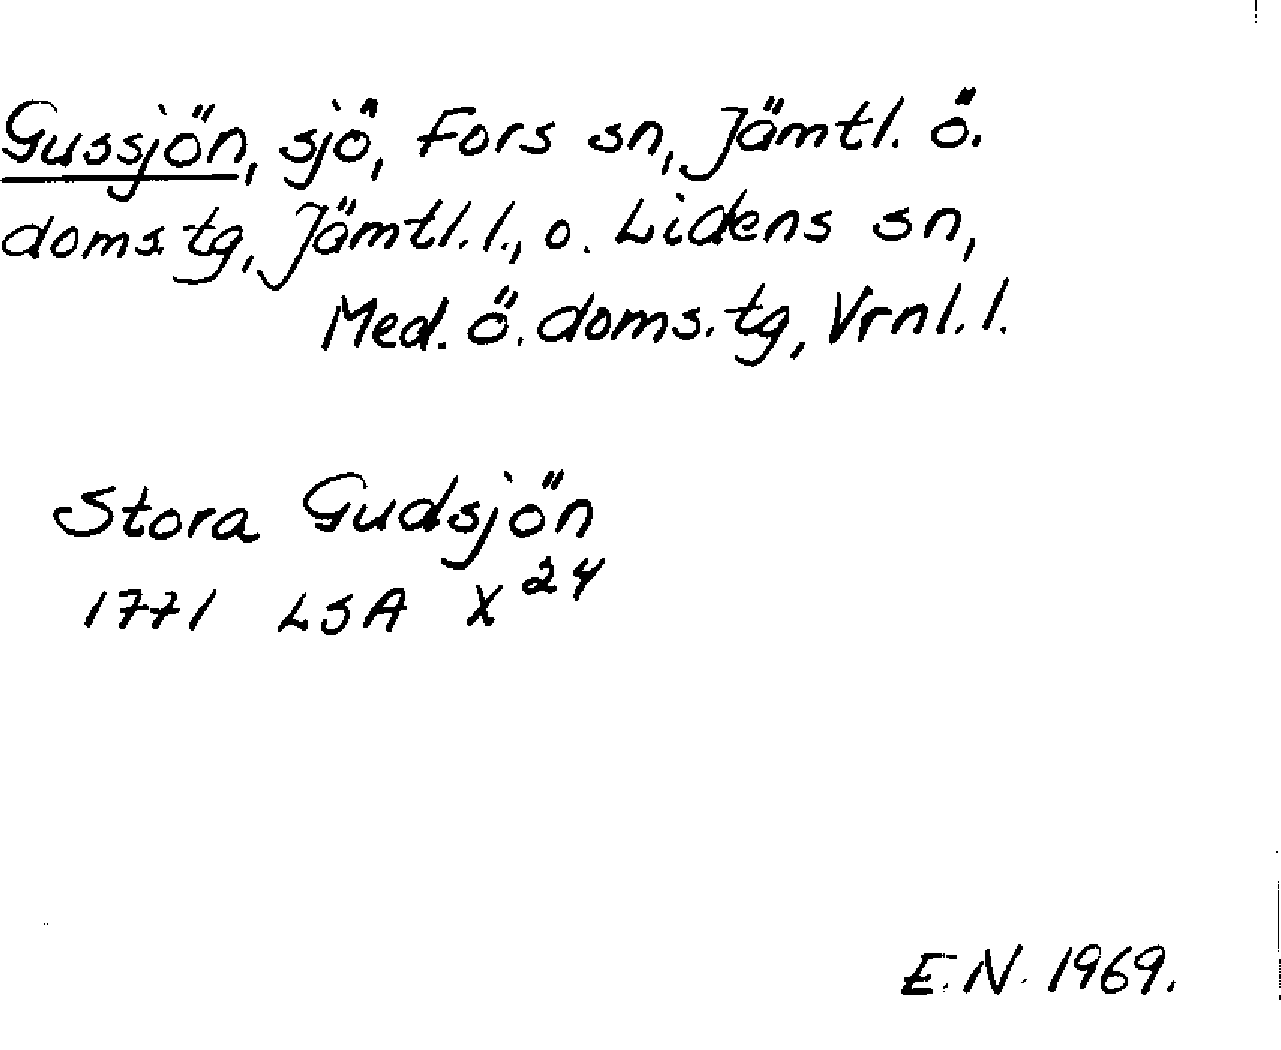 Gussjön, sjö, Fors sn, Jämtl. ö.
doms.tg, Jämtl. l., o. Lidens sn,
Med. ö. doms.tg, Vrnl. l.
Stora Gudsjön
1771 LSA X²⁴
E.N. 1969.